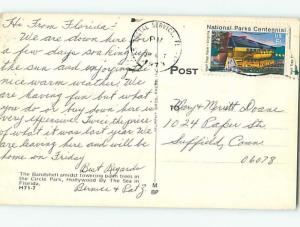 Hi From Florida!
We are down here for
a few days soaking in
the sun and enjoying the
nice warm weather. We
are having fun but what
you do or buy down here is
very expensive. Twice the price
of what it was last year. We
are leaving here and will be
home on Friday
Best Regards
Bernice & Pat Z.
The Bandshell amidst towering palm trees in
the Circle Park, Hollywood By The Sea in
Florida.
H71-7
POST
PM
National Parks Centennial
Kay & Merritt Doane
1024 Paper St
Suffield, Conn
06078